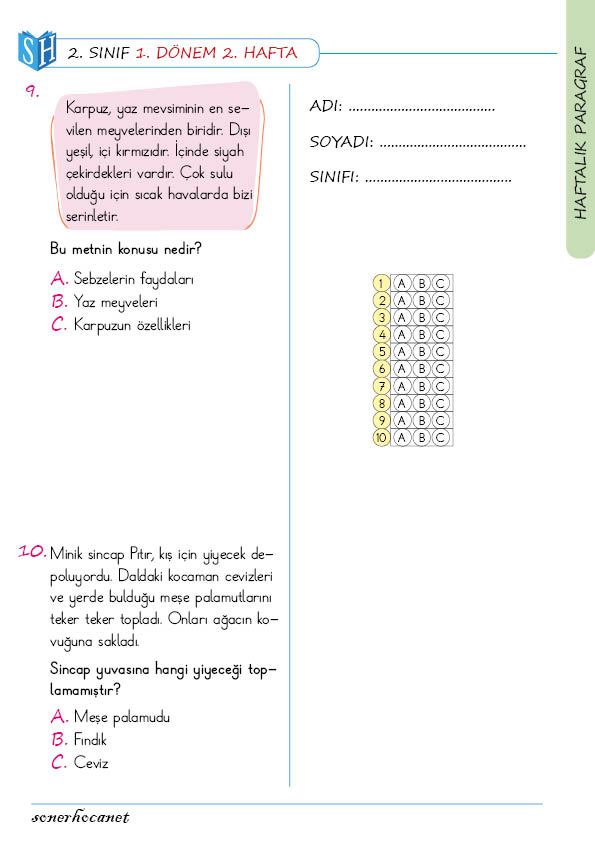 SH
2. SINIF 1. DÖNEM 2. HAFTA
HAFTALIK PARAGRAF
9.
Karpuz, yaz mevsiminin en se-
vilen meyvelerinden biridir. Dışı
yeşil, içi kırmızıdır. İçinde siyah
çekirdekleri vardır. Çok sulu
olduğu için sıcak havalarda bizi
serinletir.
Bu metnin konusu nedir?
A. Sebzelerin faydaları
B. Yaz meyveleri
C. Karpuzun özellikleri
10. Minik sincap Pıtır, kış için yiyecek de-
poluyordu. Daldaki kocaman cevizleri
ve yerde bulduğu meşe palamutlarını
teker teker topladı. Onları ağacın ko-
vuğuna sakladı.
Sincap yuvasına hangi yiyeceği top-
lamamıştır?
A. Meşe palamudu
B. Fındık
C. Ceviz
ADI: .......................................
SOYADI: .......................................
SINIFI: .......................................
1 A B C
2 A B C
3 A B C
4 A B C
5 A B C
6 A B C
7 A B C
8 A B C
9 A B C
10 A B C
sonerhocanet